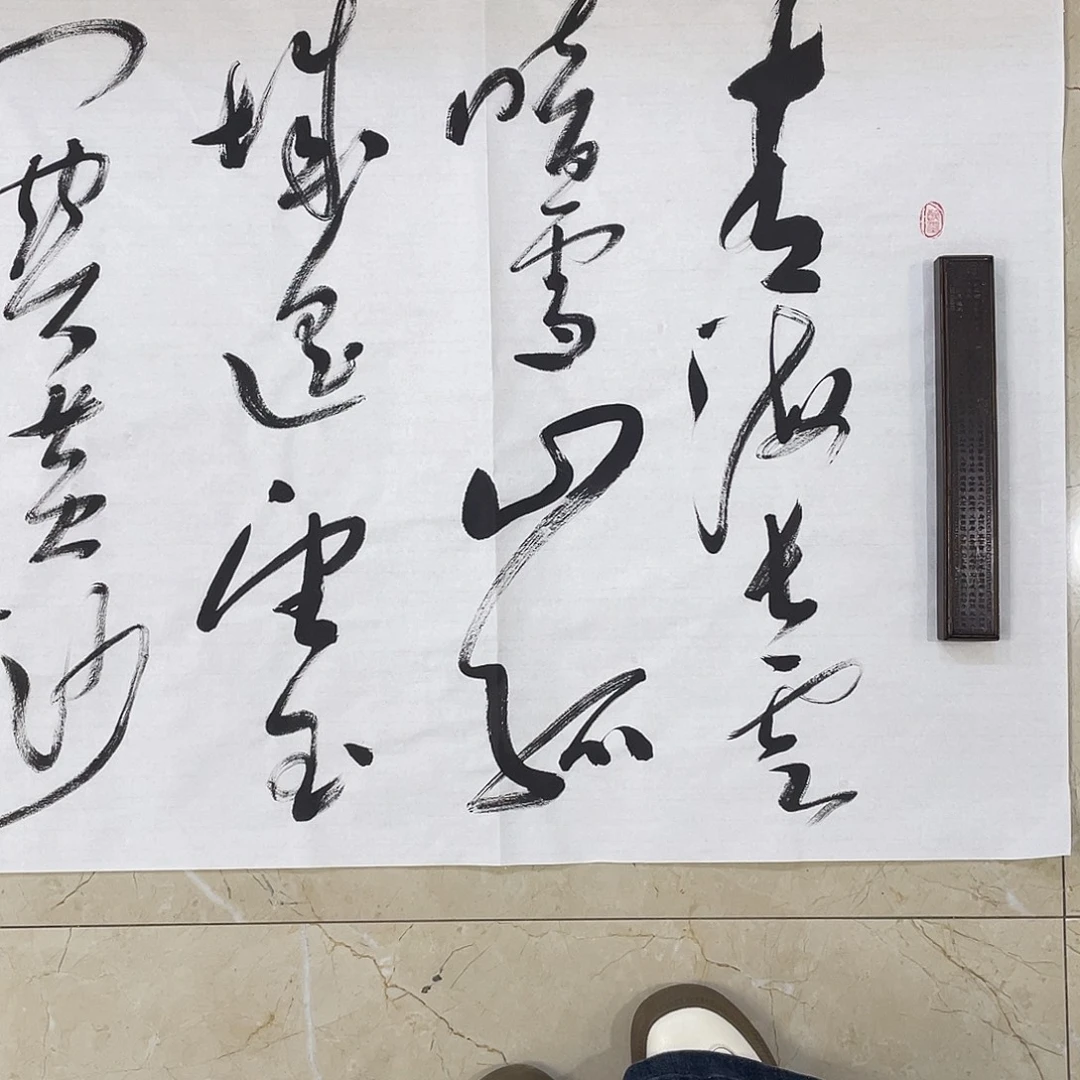 青海长云
暗雪山孤
城遥望玉
门黄沙